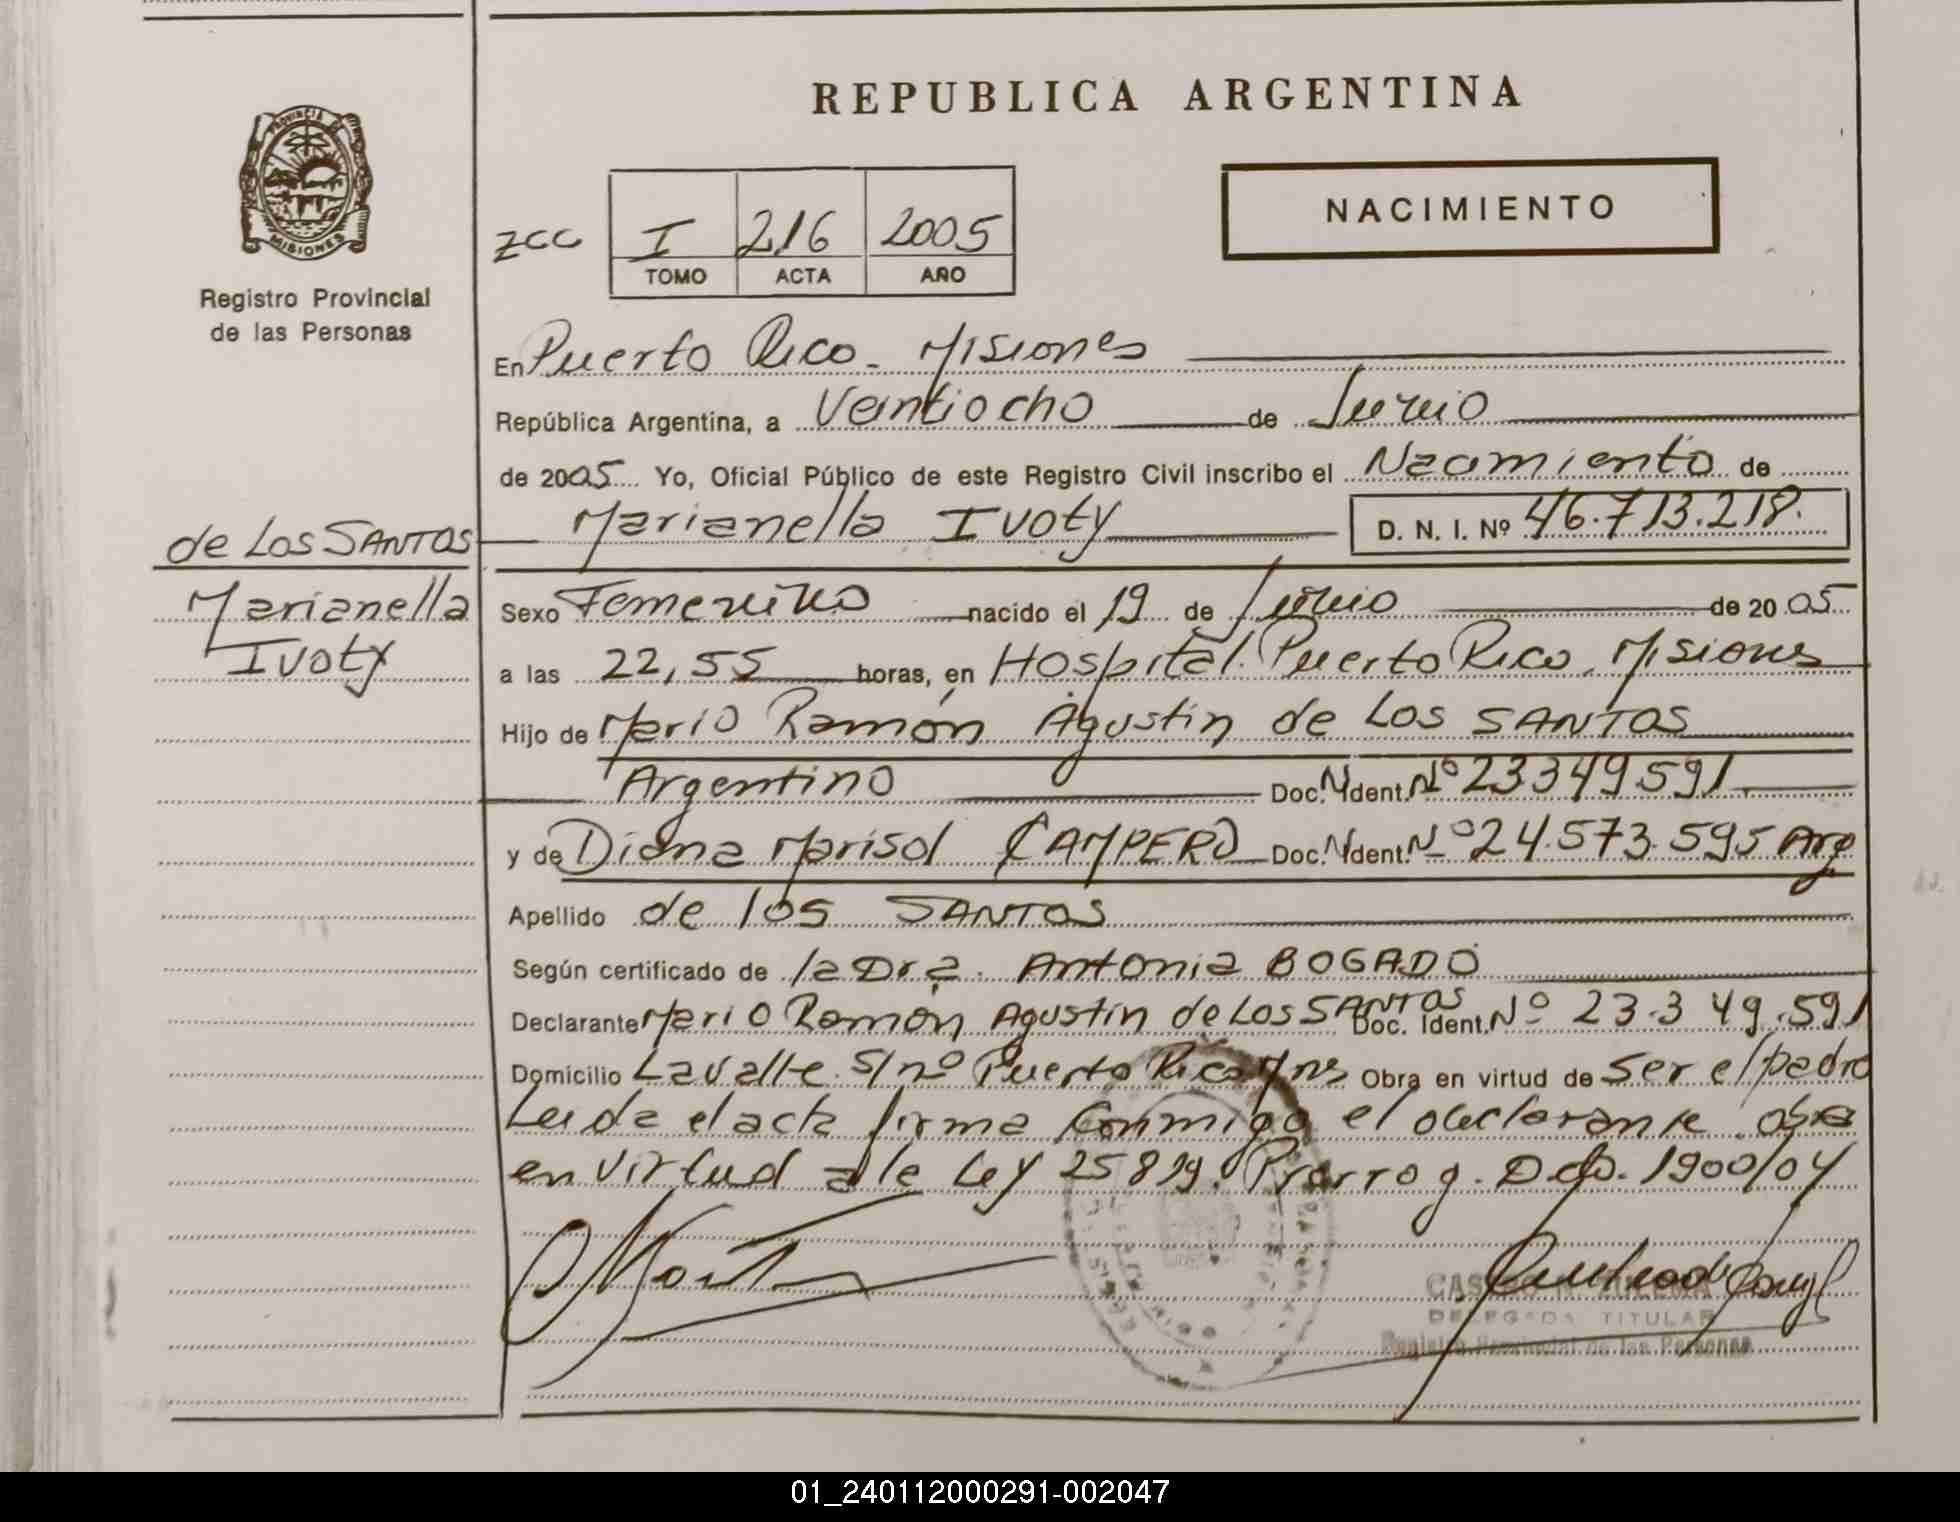 REPUBLICA ARGENTINA
PROVINCIA DE
MISIONES
Registro Provincial
de las Personas
NACIMIENTO
zcc I 216 2005
TOMO ACTA AÑO
En Puerto Rico - Misiones
República Argentina, a Veintiocho de Junio
de 2005 Yo, Oficial Público de este Registro Civil inscribo el Nacimiento de
Marianella Ivoty D. N. I. Nº 46.713.218.
de Los SANTOS
Marianella
Ivoty
Sexo Femenino nacido el 19 de Junio de 2005
a las 22,55 horas, en Hospital. Puerto Rico. Misiones
Hijo de Mario Ramón Agustín de Los SANTOS
Argentino Doc. Ident. Nº 23349591
y de Diana Marisol CAMPERO Doc. Ident. Nº 24.573.595 Arg
Apellido de los SANTOS
Según certificado de la Dra. Antonia BOGADO
Declarante Mario Ramón Agustín de Los SANTOS Doc. Ident. Nº 23.349.591
Domicilio Lavalle S/nº Puerto Rico Mns Obra en virtud de Ser el padre
Leida el acta firma Conmigo el declarante. obra
en virtud a le Ley 25819. Prorrog. Dcto. 1900/04
DELEGADA TITULAR
Registro Provincial de las Personas
01_240112000291-002047